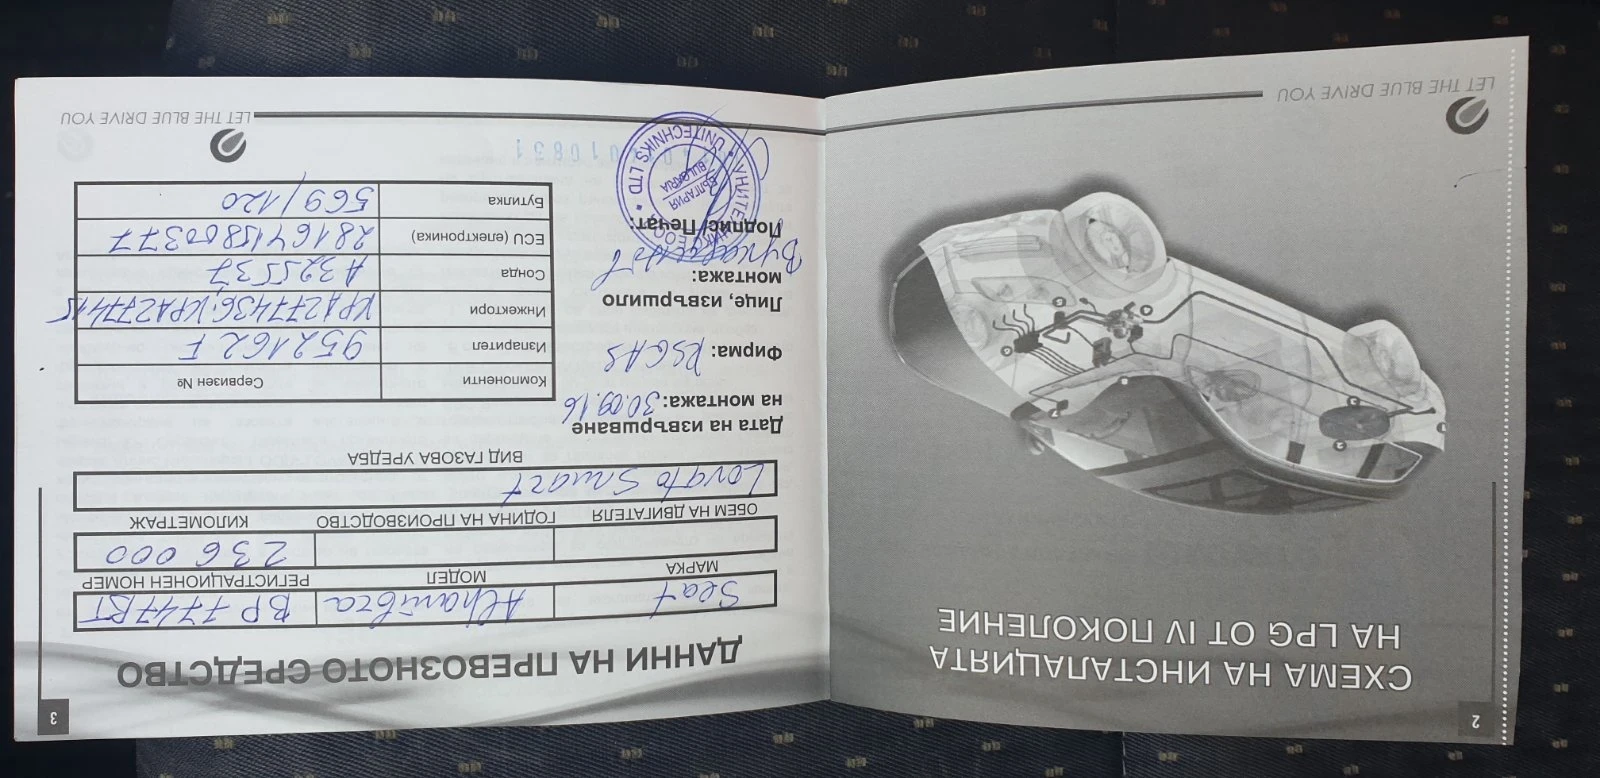 2
СХЕМА НА ИНСТАЛАЦИЯТА
НА LPG ОТ IV ПОКОЛЕНИЕ
LET THE BLUE DRIVE YOU
3
ДАННИ НА ПРЕВОЗНОТО СРЕДСТВО
Seat Alhambra BP 7747 BT
МАРКА МОДЕЛ РЕГИСТРАЦИОНЕН НОМЕР
236 000
ОБЕМ НА ДВИГАТЕЛЯ ГОДИНА НА ПРОИЗВОДСТВО КИЛОМЕТРАЖ
Lovato Smart
ВИД ГАЗОВА УРЕДБА
Дата на извършване
на монтажа: 30.09.16
Фирма: RSGAS
Лице, извършило
монтажа:
Подпис, Печат:
Компоненти Сервизен №
Изпарител 952162 F
Инжектори KPA277436, KPA277415
Сонда A325537
ECU (електроника) 2816415800377
Бутилка 569/120
БЪЛГАРИЯ
BULGARIA
UNITECHNIKS LTD
010831
LET THE BLUE DRIVE YOU